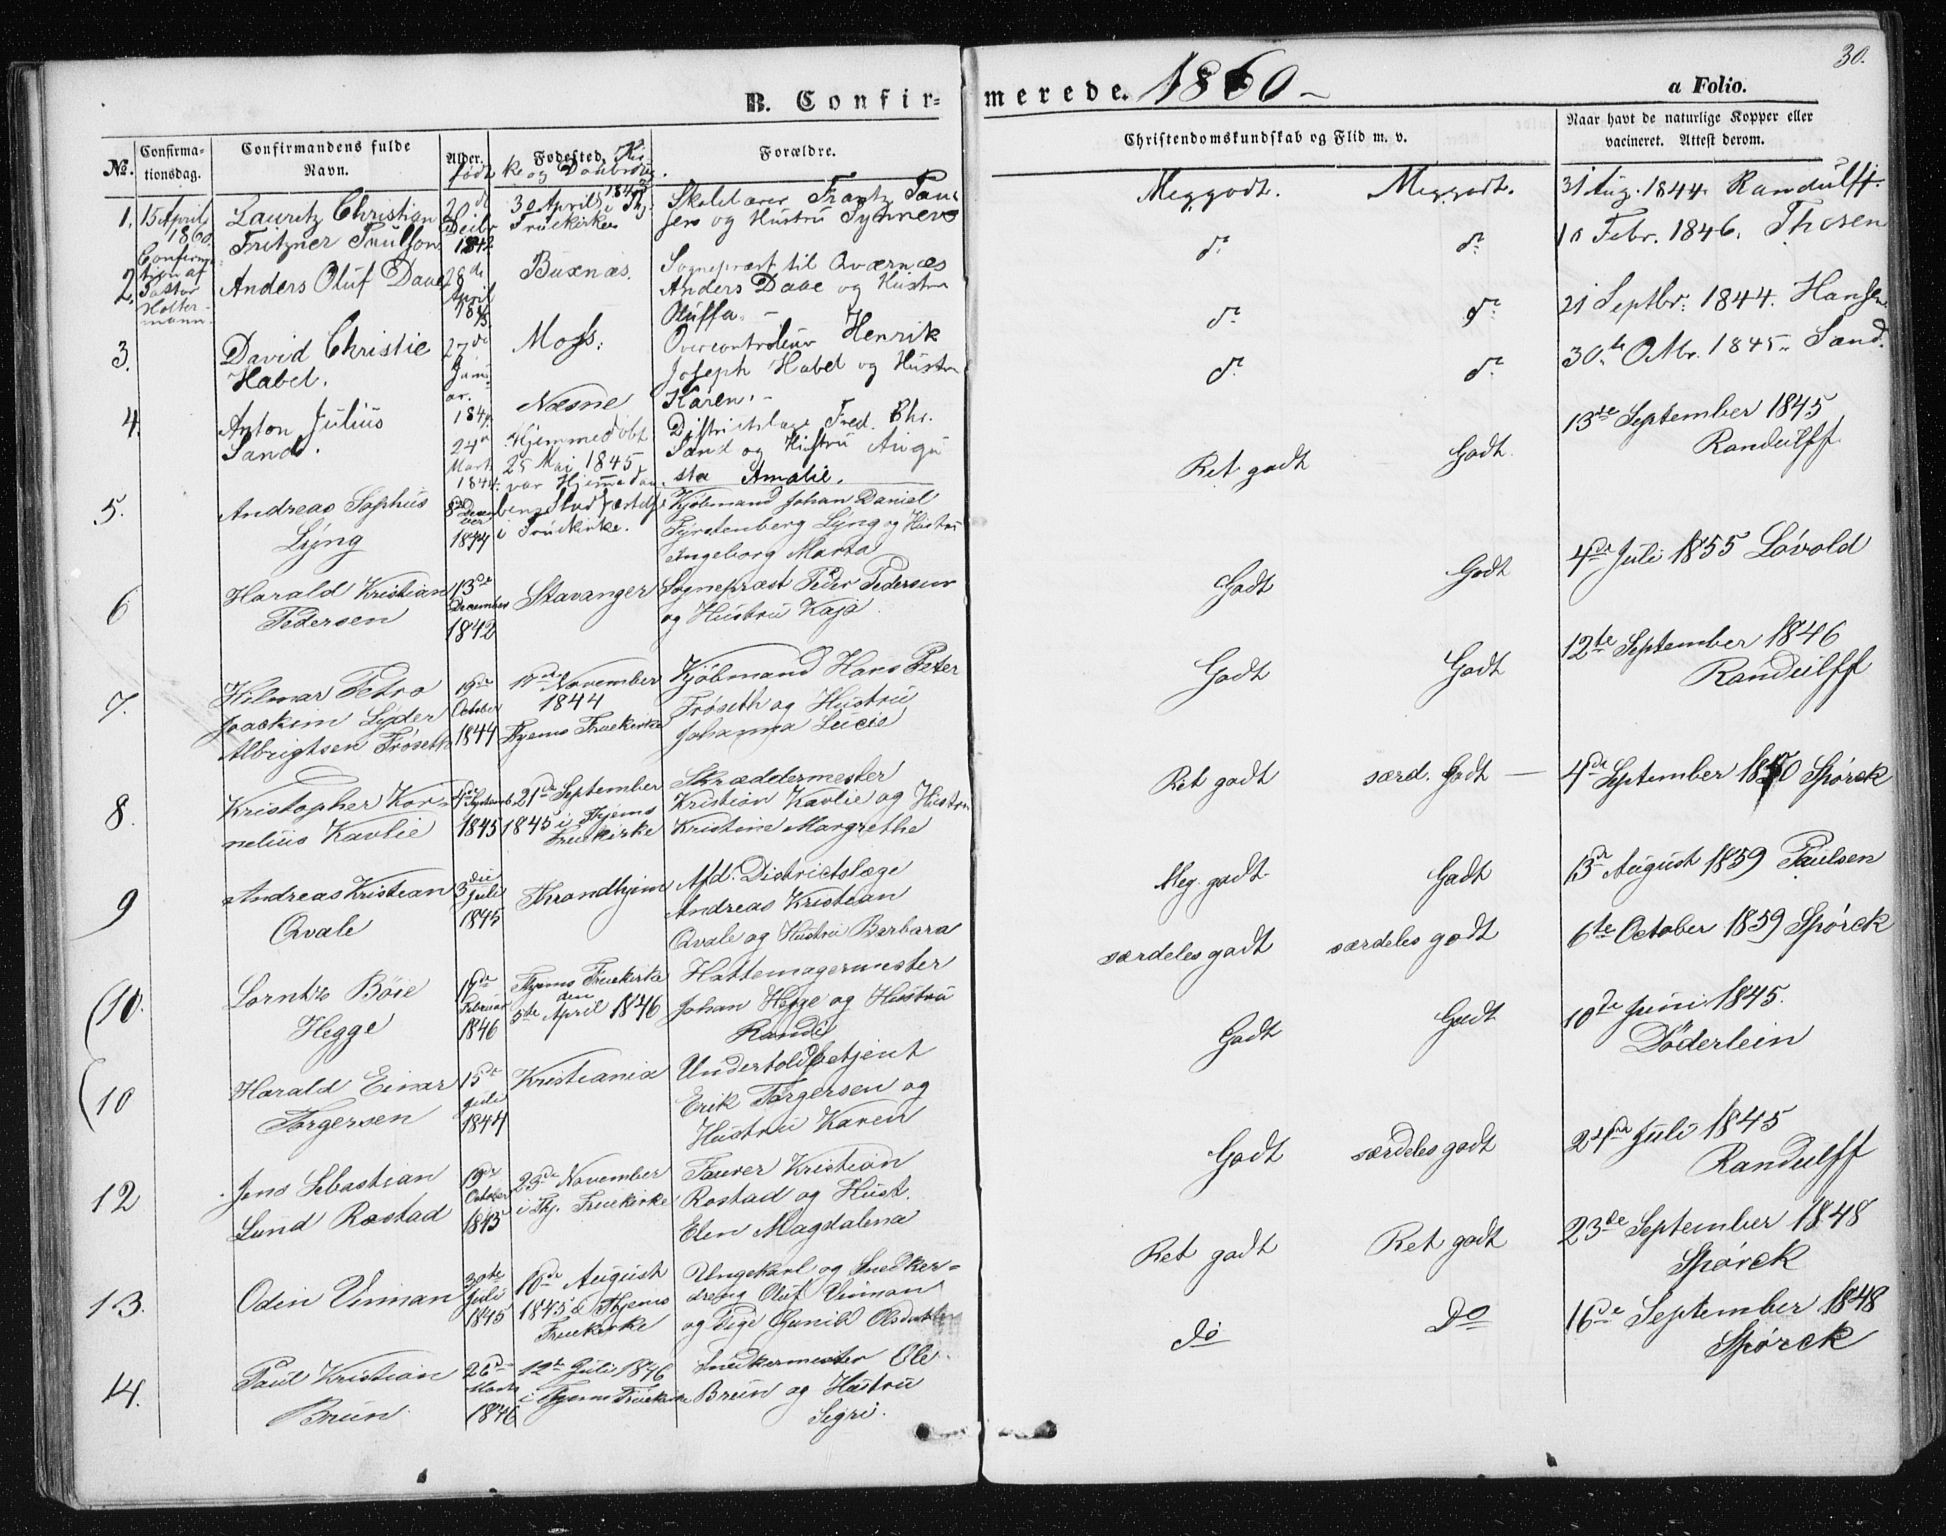 30.
B. Confir-
merede. 1860 -
a Folio.
№.
Confirma-
tionsdag.
Confirmandens fulde
Navn.
Alder.
født
Fødested. Kir-
ke og Daabsdag.
Forældre.
Christendomskundskab og Flid m. v.
Naar havt de naturlige Kopper eller
vacineret. Attest derom.
1. 15 April
1860
Confirma-
tion af
Pastor
Holter-
mann.
Lauritz Christian
Fritzner Paulson
20 de
Decbr
1842
30 April 1843
i Thj.
Fruekirke
Skolelærer Frantz Paul
sen og Hustru Synneve
Meg godt. Meg godt.
31 Aug. 1844. Randulff.
2.
Anders Oluf Daae
28 de
April
1845
Buxnæs.
Sognepræst til Qværnæs
Anders Daae og Hustru
Oluffa. -
do do
10 Febr. 1846. Thesen
3.
David Christie
Habel.
27 de
Janu-
ar.
1844.
Moss.
Overcontroleur Henrik
Joseph Habel og Hustru
Karen. -
do do
21 Septbr. 1844. Hansen
4.
Anton Julius
Sand.
24 de
Marts
1844.
Næsne
Hjemmedøbt
25 Mai 1845
Districtslæge Fred. Chr.
Sand og Hustru Augu
sta Amalie.
do do
30 te Octbr. 1845. Sand.
5.
Andreas Sophus
Lyng
8 de Decem
ber
1844
i Fruekirke.
Kjøbmand Johan Daniel
Fyrstenberg Lyng og Hustru
Ingeborg Marta
Ret godt Godt.
13 de September 1845
Randulff.
6
Harald Kristian
Pedersen
13 de
December
1842
Stavanger
Sognepræst Peder Pedersen
og Hustru Kaja
Godt Godt
4 de Juli 1855 Løvold
7.
Hilmar Petro
Joakim Lyder
Albrigtsen Frøseth
19 de
October
1844
17 de November
1844
Thjems Fruekirke
Kjøbmand Hans Peter
Frøseth og Hustru
Johanna Lucie
Godt Godt
12 te September 1846
Randulff
8.
Kristopher Kor-
nelius Kavlie
4 de Septemb
1845
21 de September
1845 i Thjems
Fruekirke
Skræddermester
Kristian Kavlie og Hustru
Kristine Margrethe
Ret godt særd. Godt -
4 de September 1850 Spørck
9
Andreas Kristian
Qvale
3 die
Juli
1845
Throndhjem
Afd. Districtslæge
Andreas Kristian
Qvale og Hustru Barbara
Meg. godt. Godt
13 de August 1859 Paulsen
(10.
Lorntz Böie
Hegge
Februar
1846
Thjems Fruekirke
den
5 te April 1846
Hattemagermester
Johan Hegge og Hustru
Randi
særdeles godt særdeles godt
6 te October 1859 Spørck
(10
Harald Einar
Torgersen
15 de
Juli
1844
Kristiania
Undertoldbetjent
Erik Torgersen og
Hustru Karen
Godt Godt
10 de Juni 1845.
Döderlein
12
Jens Sebastian
Lund Rostad
19 de
October
1845
23 de November
i Thj. Fruekirke
Farver Kristian
Rostad og Hust.
Elen Magdalena
Godt særdeles godt
24 de Juli 1845
Randulff
13.
Odin Vinnan
30 te
Juli
1845
10 de August
1845 i Thjems
Fruekirke
Ungekarl og Snedker-
dreng Oluf Vinnan
og Pige Gunild Olsdatter
Ret godt Ret godt
23 de September 1848
Spørck
14.
Paul Kristian
Bruun.
26 de
Marts
1846
12 te Juli 1846
i Thjems Fruekirke
Snedkermester Ole
Bruun og Hustru
Sigri.
do Do
16 de September 1848
Spørck